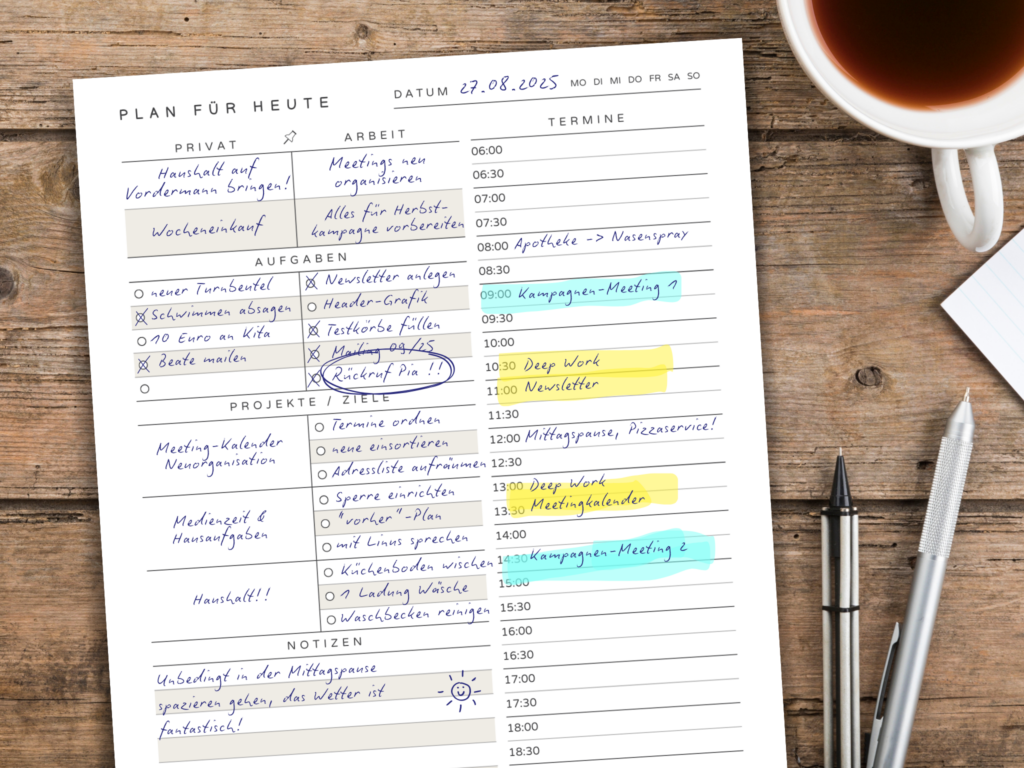 PLAN FÜR HEUTE
DATUM 27.08.2025 MO DI MI DO FR SA SO
PRIVAT
Haushalt auf
Vordermann bringen!
Wocheneinkauf
ARBEIT
Meetings neu
organisieren
Alles für Herbst-
kampagne vorbereiten
AUFGABEN
neuer Turnbeutel
Schwimmen absagen
10 Euro an Kita
Beate mailen
Newsletter anlegen
Header-Grafik
Testkörbe füllen
Mailing 09/25
Rückruf Pia !!
PROJEKTE / ZIELE
Meeting-Kalender
Neuorganisation
Termine ordnen
neue einsortieren
Adressliste aufräumen
Medienzeit &
Hausaufgaben
Sperre einrichten
"vorher"-Plan
mit Linus sprechen
Haushalt!!
Küchenboden wischen
1 Ladung Wäsche
Waschbecken reinigen
NOTIZEN
Unbedingt in der Mittagspause
spazieren gehen, das Wetter ist
fantastisch!
TERMINE
06:00
06:30
07:00
07:30
08:00 Apotheke -> Nasenspray
08:30
09:00 Kampagnen-Meeting 1
09:30
10:00
10:30 Deep Work
11:00 Newsletter
11:30
12:00 Mittagspause, Pizzaservice!
12:30
13:00 Deep Work
13:30 Meetingkalender
14:00
14:30 Kampagnen-Meeting 2
15:00
15:30
16:00
16:30
17:00
17:30
18:00
18:30